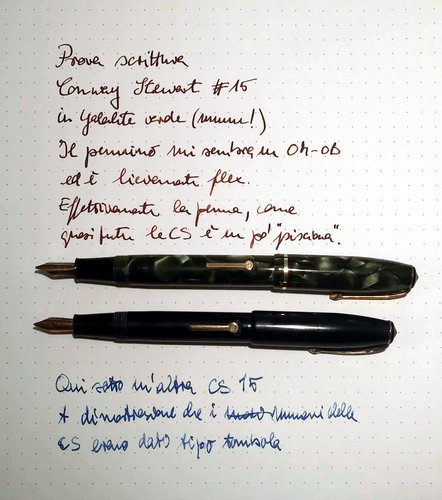 Prova scrittura
Conway Stewart #15
in galalite verde (mmm!)
Il pennino mi sembra un OM-OB
ed è lievemente flex.
Effettivamente la penna, come
quasi tutte le CS è un pò "pisciona".
Qui sotto un'altra CS 15
A dimostrazione che i numeri della
CS erano dati tipo tombola